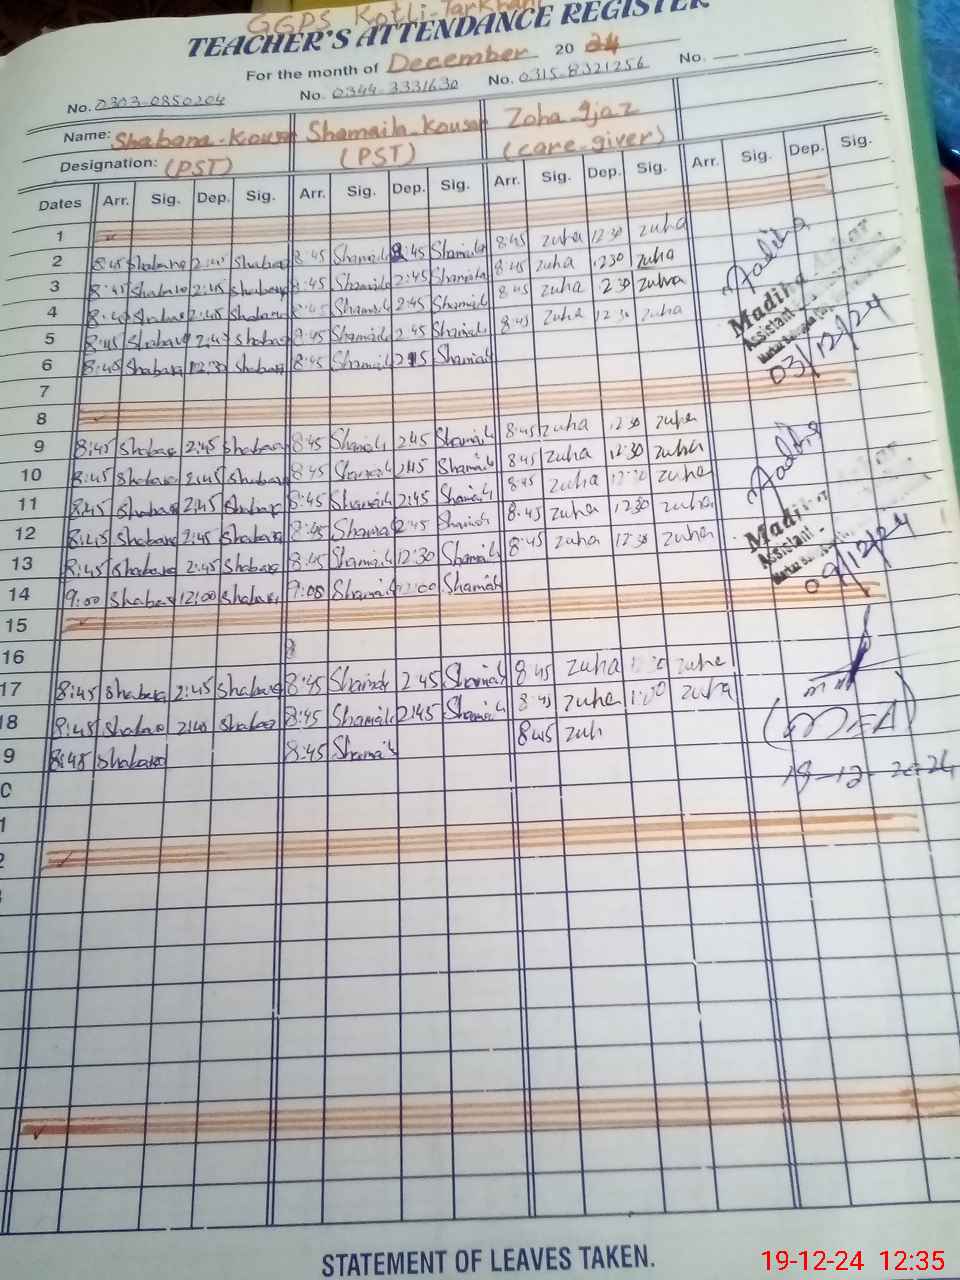 GGPS Kotli-Tarkhan
TEACHER'S ATTENDANCE REGISTER
For the month of December 2024
No. 0303-0850204 No. 0344-3331630 No. 0315-8321256 No.
Name: Shabana-Kousa Shamaila Kousa Zoha Ijaz
Designation: (PST) (PST) (care-giver)
Dates Arr. Sig. Dep. Sig. Arr. Sig. Dep. Sig. Arr. Sig. Dep. Sig. Arr. Sig. Dep. Sig.
1
2 8:45 Shabana 2:45 Shabana 8:45 Shamaila 2:45 Shamaila 8:45 zuha 12:30 zuha
3 8:45 Shabana 2:45 Shabana 8:45 Shamaila 2:45 Shamaila 8:45 zuha 12:30 zuha
4 8:45 Shabana 2:45 Shabana 8:45 Shamaila 2:45 Shamaila 8:45 zuha 12:30 zuha
5 8:45 Shabana 2:45 Shabana 8:45 Shamaila 2:45 Shamaila 8:45 zuha 12:30 zuha
6 8:45 Shabana 12:30 Shabana 8:45 Shamaila Shamaila
Madiha
Assistant
03/12/24
7
8
9 8:45 Shabana 2:45 Shabana 8:45 Shamaila 2:45 Shamaila 8:45 zuha 12:30 zuha
10 8:45 Shabana 2:45 Shabana 8:45 Shamaila 2:45 Shamaila 8:45 zuha 12:30 zuha
11 8:45 Shabana 2:45 Shabana 8:45 Shamaila 2:45 Shamaila 8:45 zuha 12:30 zuha
12 8:45 Shabana 2:45 Shabana 8:45 Shamaila 2:45 Shamaila 8:45 zuha 12:30 zuha
13 8:45 Shabana 2:45 Shabana 8:45 Shamaila 12:30 Shamaila 8:45 zuha 12:30 zuha
14 9:00 Shabana 12:00 Shabana 9:00 Shamaila 12:00 Shamaila
Madiha
Assistant
09/12/24
15
16
17 8:45 Shabana 2:45 Shabana 8:45 Shamaila 2:45 Shamaila 8:45 zuha zuha
18 8:45 Shabana Shabana 8:45 Shamaila 2:45 Shamaila 8:45 zuha 1:00 zuha
9 8:45 Shabana 8:45 Shamaila 8:45 zuh
18-12-2024
STATEMENT OF LEAVES TAKEN.
19-12-24 12:35